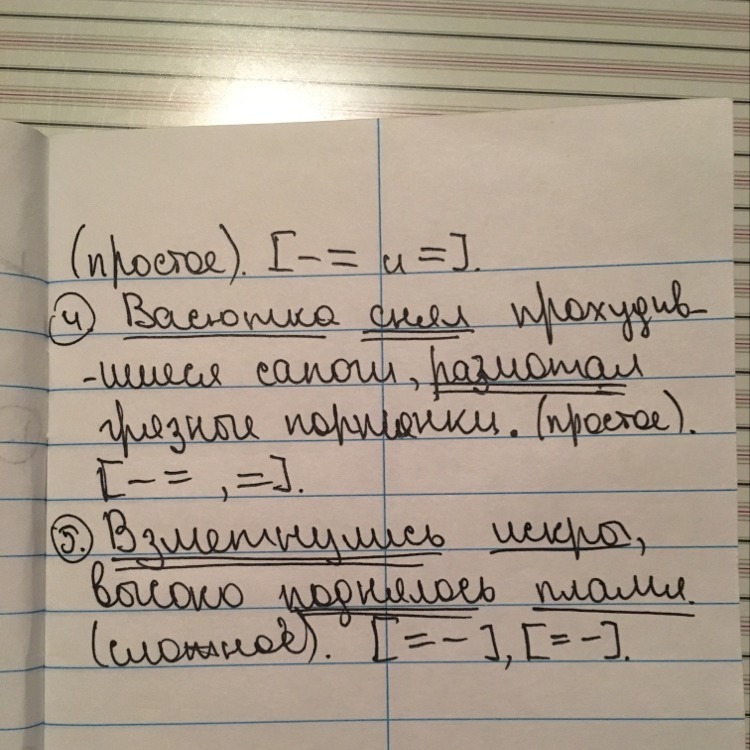 (простое). [– = и =].
4) Васютка снял прохудив-
-шиеся сапоги, размотал
грязные портянки. (простое).
[– = , =].
5. Взметнулись искры,
высоко поднялось пламя.
(сложное). [= –], [= –].